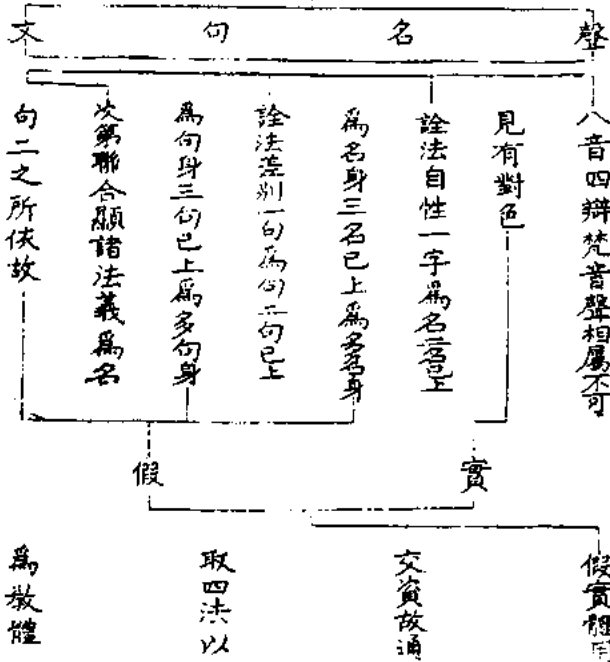 聲
名
句
文
八音四辯梵音聲相屬不可
見有對色
詮法自性一字爲名二名已上
爲名身三名已上爲多名身
詮法差別一句爲句二句已上
爲句身三句已上爲多句身
次第聯合顯諸法義爲名
句二之所依故
實
假
假實體用
交資故通
取四法以
爲教體